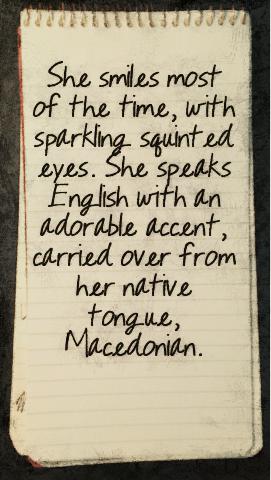 She smiles most
of the time, with
sparkling squinted
eyes. She speaks
English with an
adorable accent,
carried over from
her native
tongue,
Macedonian.